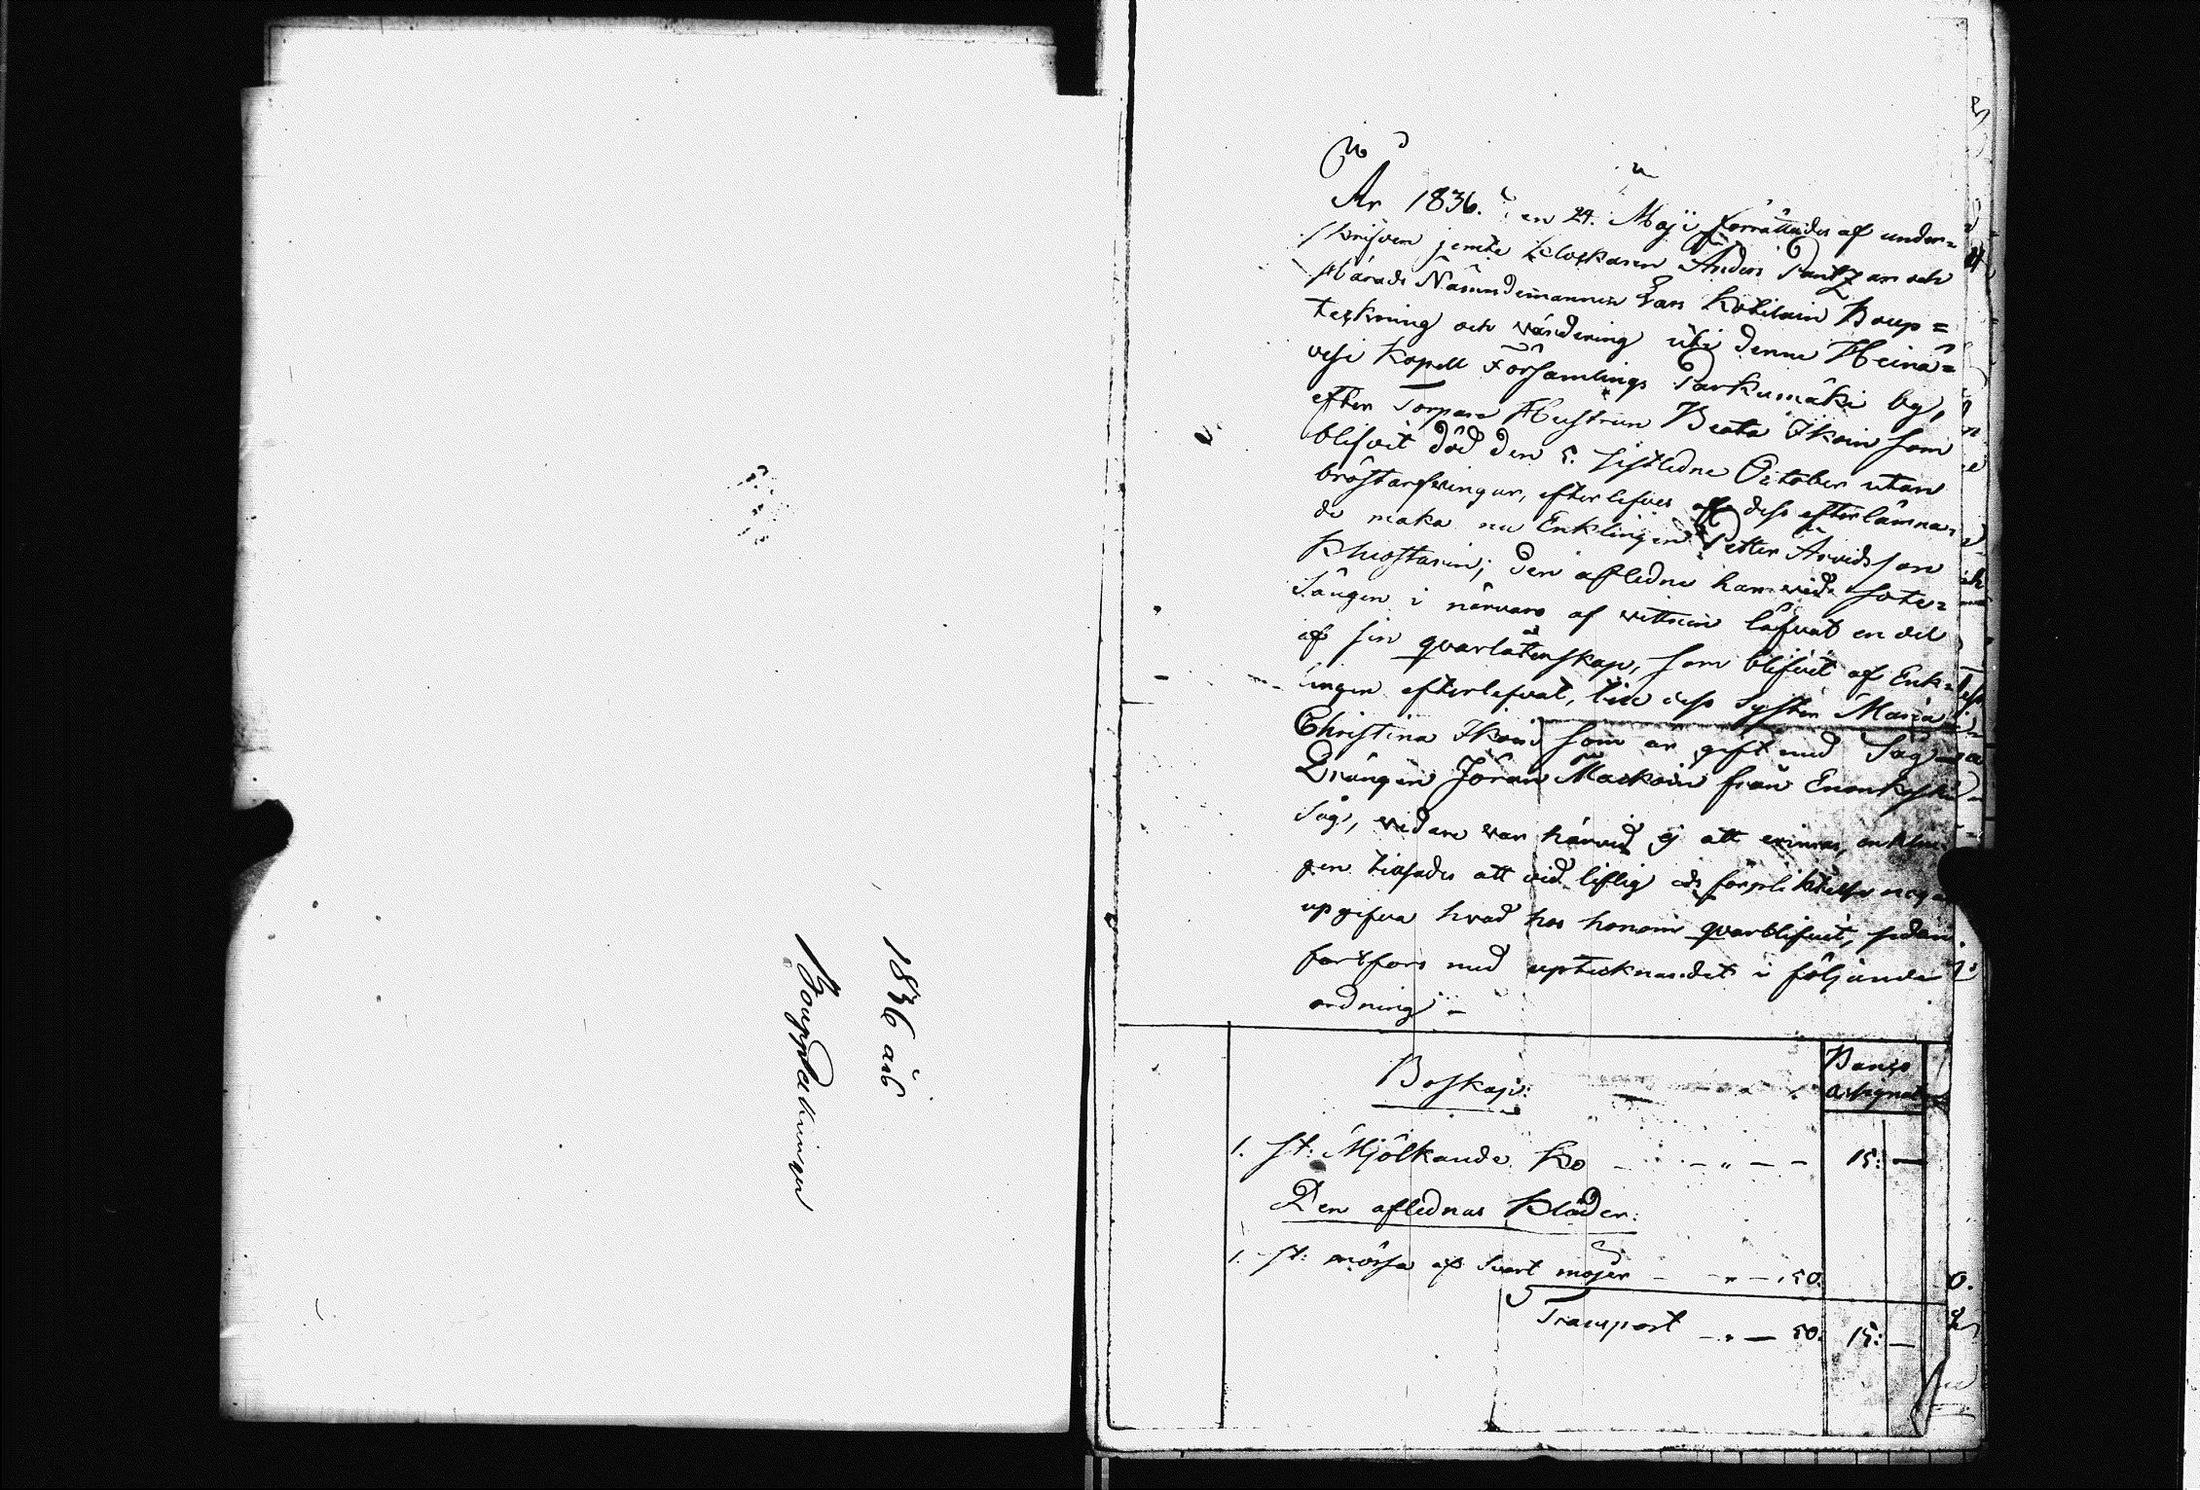 1836 års
Boupptekningar
År 1836. den 24. Maji förrättades af under=
skrifven jemte Klockaren Anders Pantzar och
Härads Nämndemannen Lars Kotilain Boup=
tekning och värdering uti denne Heinä=
vesi Kapell Församlings Parkumäki by,
efter Torpare Hustrun Beata Ikoin som
blifvit död den 5. sistledne October utan
bröstarfvingar, efterlefves af dess efterlämna=
de maka nu Enklingen Petter Arvidsson
; den aflidne har vid sote=
sängen i närvaro af vittnen låfvat en del
af sin qvarlåtenskap, som blifvit af Enk=
lingen efterlefvat, till dess syster Maria
Christina Ikoin som är gift med Såg
Drängen Jöran Mackoin från Enonkoski
Såg, vidare var härvid ej att erinra, enklin
gen tilsades att vid liflig eds förpliktelse noga
upgifva hvad hos honom qvarblifvit, sedan
fortfors med uptecknandet i följande
ordning -
Boskap: Banco
Assignat
1. st: Mjölkande Ko - - " - - 15: -
Den aflednas Kläder:
1. st: mössa af svart - " - 50.
Transport - " - 50. 15: -